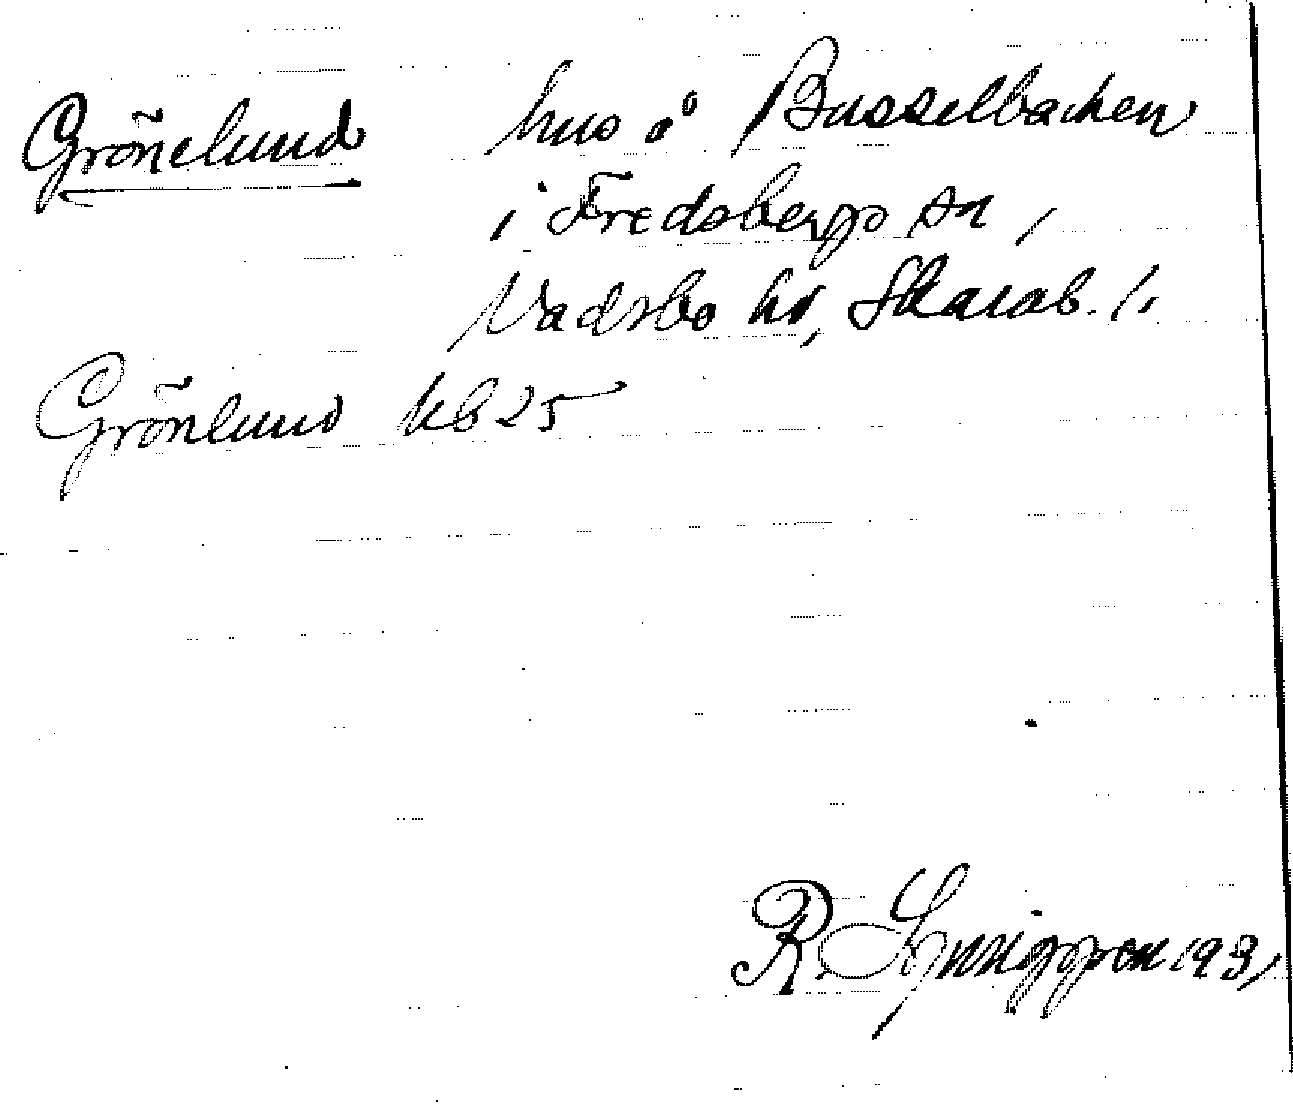 Grönelund hus å Busselbacken
i Fredsbergs sn,
Vadsbo hd, Skarab. l.
Grönlund kb 25
R. Ljunggren 193